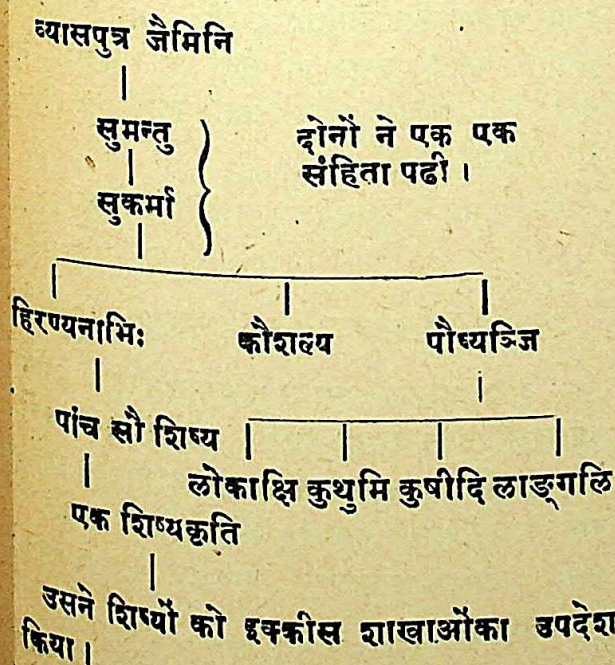 व्यासपुत्र जैमिनि
सुमन्तु
दोनों ने एक एक
संहिता पढी ।
सुकर्मा
हिरण्यनाभिः कौशल्य पौष्यञ्जि
पांच सौ शिष्य
लोकाक्षि कुथुमि कुषीदि लाङ्गलि
एक शिष्यकृति
उसने शिष्यों को इक्कीस शाखाओंका उपदेश
किया ।